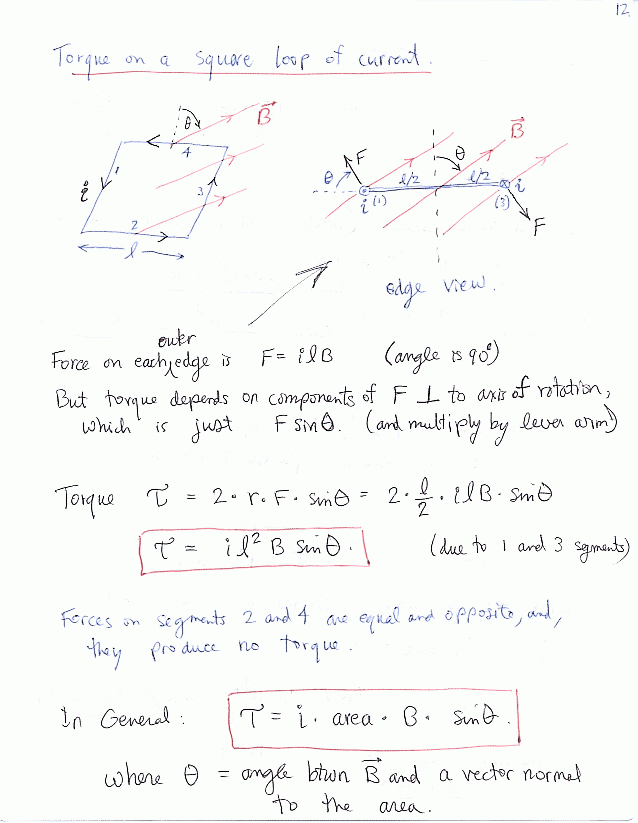 12
Torque on a square loop of current.
θ B⃗
4
1
i 3
2
l
B⃗
F θ
θ l/2 l/2 i
i (1) (3)
F
edge view.
outer
Force on each ‸ edge is F = ilB (angle is 90°)
But torque depends on components of F ⊥ to axis of rotation,
which is just F sinθ. (and multiply by lever arm)
Torque τ = 2 · r · F · sinθ = 2 · l/2 · ilB · sinθ
τ = i l² B sinθ. (due to 1 and 3 segments)
Forces on segments 2 and 4 are equal and opposite, and,
they produce no torque.
In General: τ = i · area · B · sinθ.
where θ = angle btwn B⃗ and a vector normal
to the area.